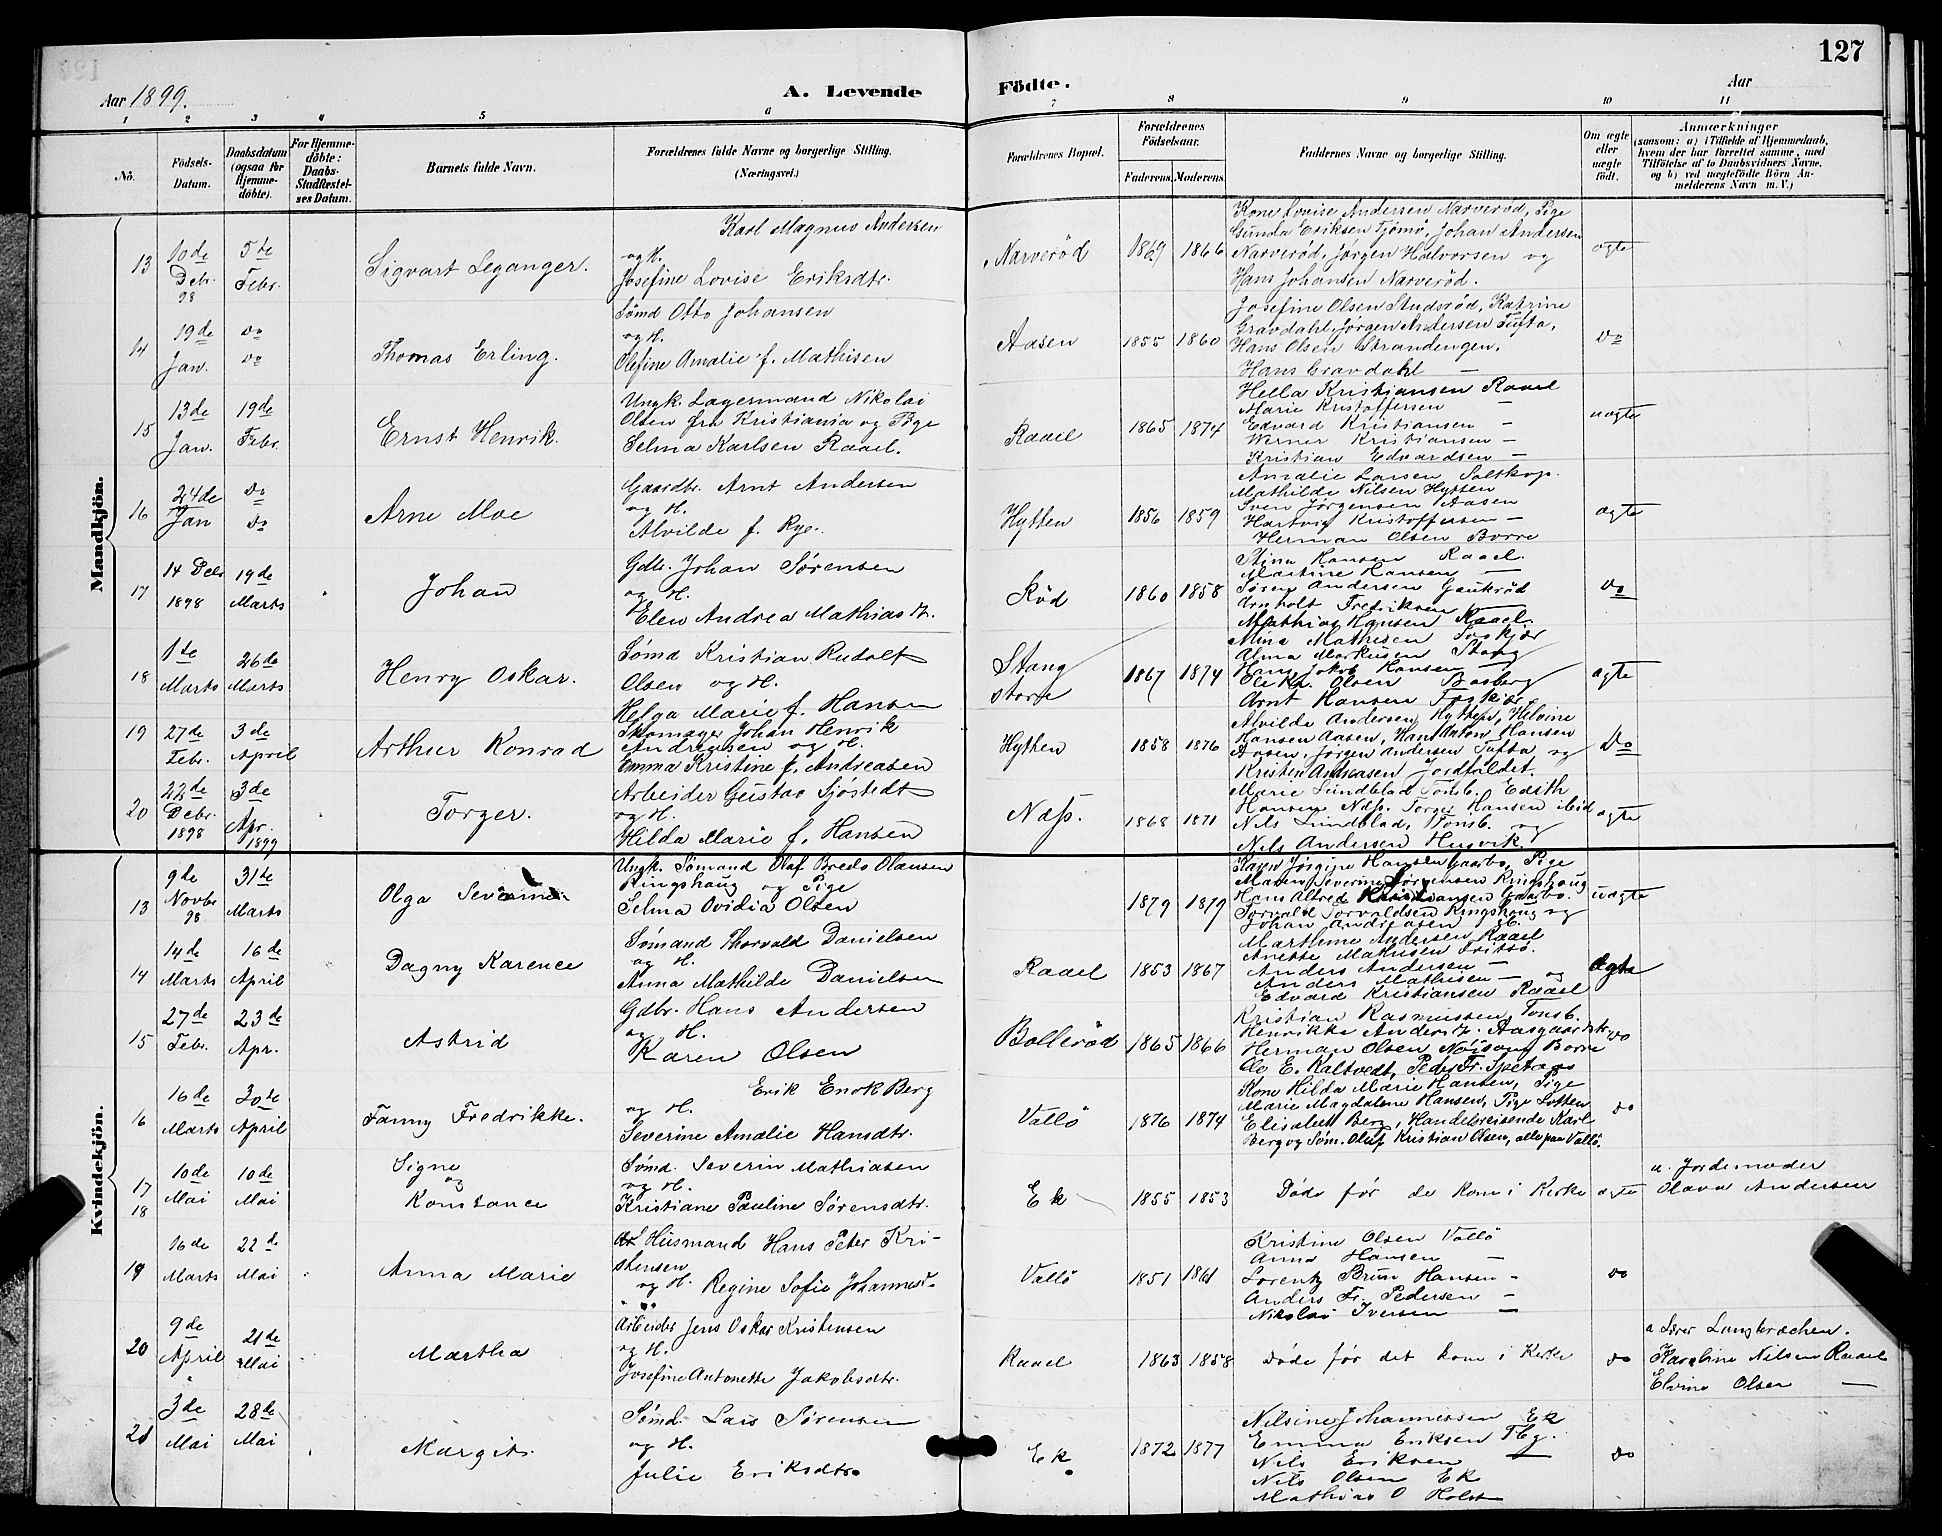 127
Aar 1899.
A. Levende Födte.
Aar
1 2 3 4 5 6 7 8 9 10 11
No.
Födsels-Datum.
Daabsdatum (ogsaa for Hjemme-döbte).
For Hjemme-döbte: Daabs-Stadfæstel-ses Datum.
Barnets fulde Navn.
Forældrenes fulde Navne og borgerlige Stilling.
(Næringsvei.)
Forældrenes Bopæl.
Forældrenes Födselsaar.
Faderens. Moderens.
Faddernes Navne og borgerlige Stilling.
Om ægte eller uægte födt.
Anmærkninger
(saasom: a) i Tilfælde af Hjemmedaab,
hvem der har forrettet samme, med
Tilföielse af to Daabsvidners Navne,
og b) ved uægtefödte Börn An-
melderens Navn m. V.)
Mandkjön.
13 10de Debr. 98 5te Febr. Sigvart Leganger.
Karl Magnus Andersen
og H.
Josefine Lovise Eriksdtr.
Narveröd 1869 1866
Kone Lovise Andersen Narveröd, Pige
Gunda Eriksen Tjömö, Johan Andersen
Narveröd, Jørgen Halvorsen og
Hans Johansen Narveröd.
ægte
14 19de Jan. do do Thomas Erling.
Sömd Otto Johansen
og H.
Olefine Amalie f. Mathisen
Aasen 1855 1860
Josefine Olsen Studsröd, Katrine
Gravdahl, Jørgen Andersen Tufta,
Hans Olsen Strandengen,
Hans Gravdahl —
do
15 13de Jan. 19de Febr. Ernst Henrik.
Ungk. Lagermand Nikolai
Olsen fra Kristiania og Pige
Selma Karlsen Raael.
Raael 1865 1874
Hella Kristiansen Raael
Marie Kristoffersen
Edvard Kristiansen —
Werner Kristiansen —
Kristian Edvardsen —
uægte
16 24de Jan do do Arne Moe
Gaardbr. Arnt Andersen
og H.
Alvilde f. Rye.
Hytten 1856 1859
Amalie Larsen Saltkop.
Mathilde Nilsen Hytten
Sven Jørgensen Aasen
Hartvig Kristoffersen —
Herman Olsen Borre
ægte
17 14 Debr 1898 19de Marts Johan
Gdbr. Johan Sørensen
og H.
Elen Andrea Mathiasdt.
Röd 1860 1858
Stina Hansen Raael.
Martine Hansen —
Søren Andersen Gaukröd
Arnholt Fredriksen —
Mathias Hansen Raael.
do
18 1te Marts 26de Marts Henry Oskar.
Sömd Kristian Rudolf
Olsen og H.
Helga Marie f. Hansen
Stang store 1867 1874
Mina Mathisen
Alma Markusen Stang
Hans Jakob Hansen —
Olsen Basberg
Arnt Hansen
ægte
19 27de Febr. 3de April Arthur Konrad
Skomager Johan Henrik
Andreasen og H.
Emma Kristine f. Andreasen
Hytten 1858 1876
Alvilde Andersen, Hytten, Hilvine
Hansen Aasen, Hans Anton Hansen
Aasen, Jørgen Andersen Tufta og
Kristen Andreasen Jordfaldet.
do
20 22de Debr. 1898 3de Apr. 1899 Torger.
Arbeider Gustav Sjöstedt
og H.
Hilda Marie f. Hansen
Næs. 1868 1871
Marie Lundblad Tönsb. Edith
Hansen Næs. Torger Hansen ibid
Nils Lundblad, Tönsb. og
Nils Andersen Husvik
ægte
Kvindekjön.
13 9de Novbr 98 31te Marts Olga Severine
Ungk. Sömand Olaf Bredo Olausen
Ringshaug og Pige
Selma Ovidia Olsen
1879 1879
Karn Jørgine Hansen Gaarbo, Pige
Maren Severine Jörgensen Ringshaug
Hans Alfred Gaarbo.
Torvald Torvaldsen Ringshaug og
Johan Andreasen
uægte
14 14de Marts 16de April Dagny Karence
Sömand Thorvald Danielsen
og H.
Anna Mathilde Danielsen
Raael 1853 1867
Marthine Andersen Raael
Anette Mathisen
Anders Andersen —
Anders Mathisen — og
Edvard Kristiansen Raael
ægte
15 27de Febr. 23de Apr. Astrid
Gdbr. Hans Andersen
og H.
Karen Olsen
Bolleröd 1865 1866
Kristian Rasmussen, Tönsb.
Henrikke Anders
Herman Olsen Borre
O E. Kaltvedt,
do
16 16de Marts 30te April Fanny Fredrikke.
Erik Enok Berg
og H.
Severine Amalie Hansdtr.
Vallö 1876 1874
Kone Hilda Marie Hansen, Pige
Marie Magdalene Hansen, Pige Lotten
Elisabet Berg, Handelsreisende Karl
Berg og Söm. Oluf Kristian Olsen, alle paa Vallö.
do
17 18 10de Mai 10de Mai Signe og Konstance
Sömd. Severin Mathiasen
og H.
Kristiane Pauline Sørensdtr.
Ek 1855 1853
Döde för de kom i Kirke
ægte
a. Jordemoder
Olava Andersen
19 16de Marts 22d Mai Anna Marie
Husmand Hans Peter Kri-
stensen
og H. Regine Sofie Johannesd-
Vallö 1851 1861
Kristine Olsen Vallö
Anna Hansen —
Lorentz Brun Hansen -
Anders Fr. Pedersen -
Nikolai Iversen —
do
20 9de April 21de Mai Martha
Arbeider Jens Oskar Kristensen
og H.
Josefine Antonette Jakobsdtr.
Raael 1863 1858
Döde för det kom i Kirke
do
a Lærer Langbrækken.
Karoline Nilsen Raael
Elvine Olsen —
21 3de Mai 28de Mai Margit.
Sömd. Lars Sørensen
og H.
Julie Eriksdtr.
Ek 1872 1877
Nilsine Johannessen Ek
Emma Eriksen Tbg.
Nils Eriksen —
Nils Olsen Ek
Mathias O Holst
do